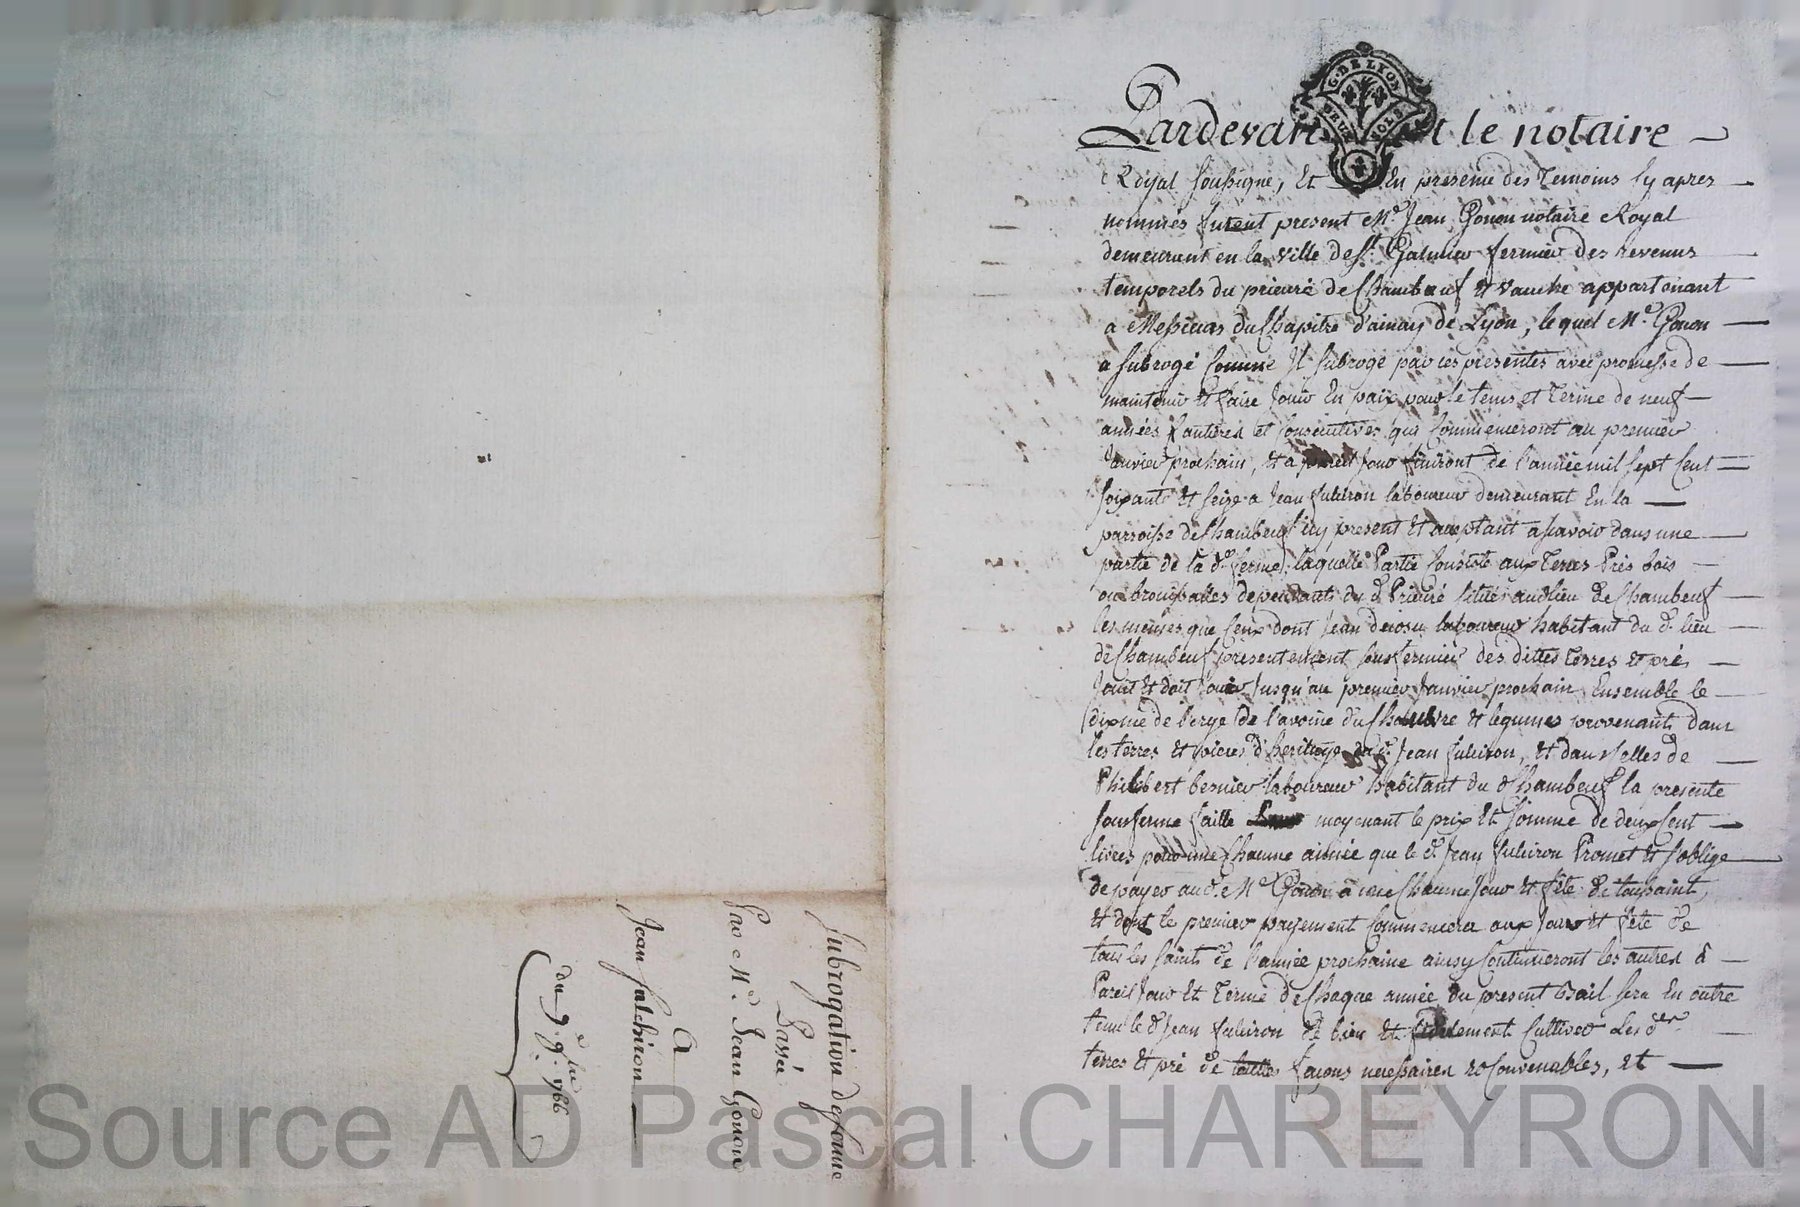 Subrogation de ferme
Passée
Par Me. Jean Gonon
A
Jean falchiron
du 9e. 9bre 1766
G. DE LYON
DEUX SOLS
Pardevant le notaire
Royal soussigné, Et En presence des Temoins Cy apres
nommés furent present Me. Jean Gonon notaire Royal
demeurant en la ville de St. Galmier fermier des revenus
temporels du prieuré de Chambeuf et vauche appartenant
a Messieurs du Chapitre d'ainay de Lyon, lequel Me. Gonon
a subrogé Comme Il subroge par ces presentes avec promesse de
maintenir et faire Jouir En paix pour le tems et Terme de neuf
années Entieres et Consecutives qui Commenceront au premier
Janvier prochain, et a pareil Jour finiront de l'année mil sept Cent
soixante et seize a Jean fulchiron laboureur demeurant En la
parroisse de Chambeuf icy present et acceptant ascavoir dans une
partie de la de. ferme, laquelle Partie Consiste aux Terres Prés bois
ou broussalles dependants du d. Prieuré situés audlieu de Chambeuf
les mesmes que Ceux dont Jean laboureur habitant du d. lieu
de Chambeuf presentement sousfermier des dittes Terres et prés
Jouit et doit Jouir Jusqu'au premier Janvier prochain Ensemble le
dixme de l'avoine du Chanvre et legumes provenants dans
les terres et pieces d'heritage du d. Jean fulchiron, et dans Celles de
Philibert bernier laboureur habitant du d Chambeuf la presente
sousferme faitte moyenant le prix et Somme de deux Cent
livres pour une Chacune année que le d. Jean fulchiron Promet et s'oblige
de payer aud. Me Gonon a une Chacune Jour et fête de toussaint,
et dont le premier payement Commencera aux Jour et fête de
tous les saints de l'année prochaine ainsy Continueront les autres à
Pareil Jour et Terme de Chaque année du present Bail sera En outre
tenu le d Jean fulchiron de bien et fidelement Cultiver Les des.
terres et pré de touttes façons necessaires et Convenables, et
Source AD Pascal CHAREYRON